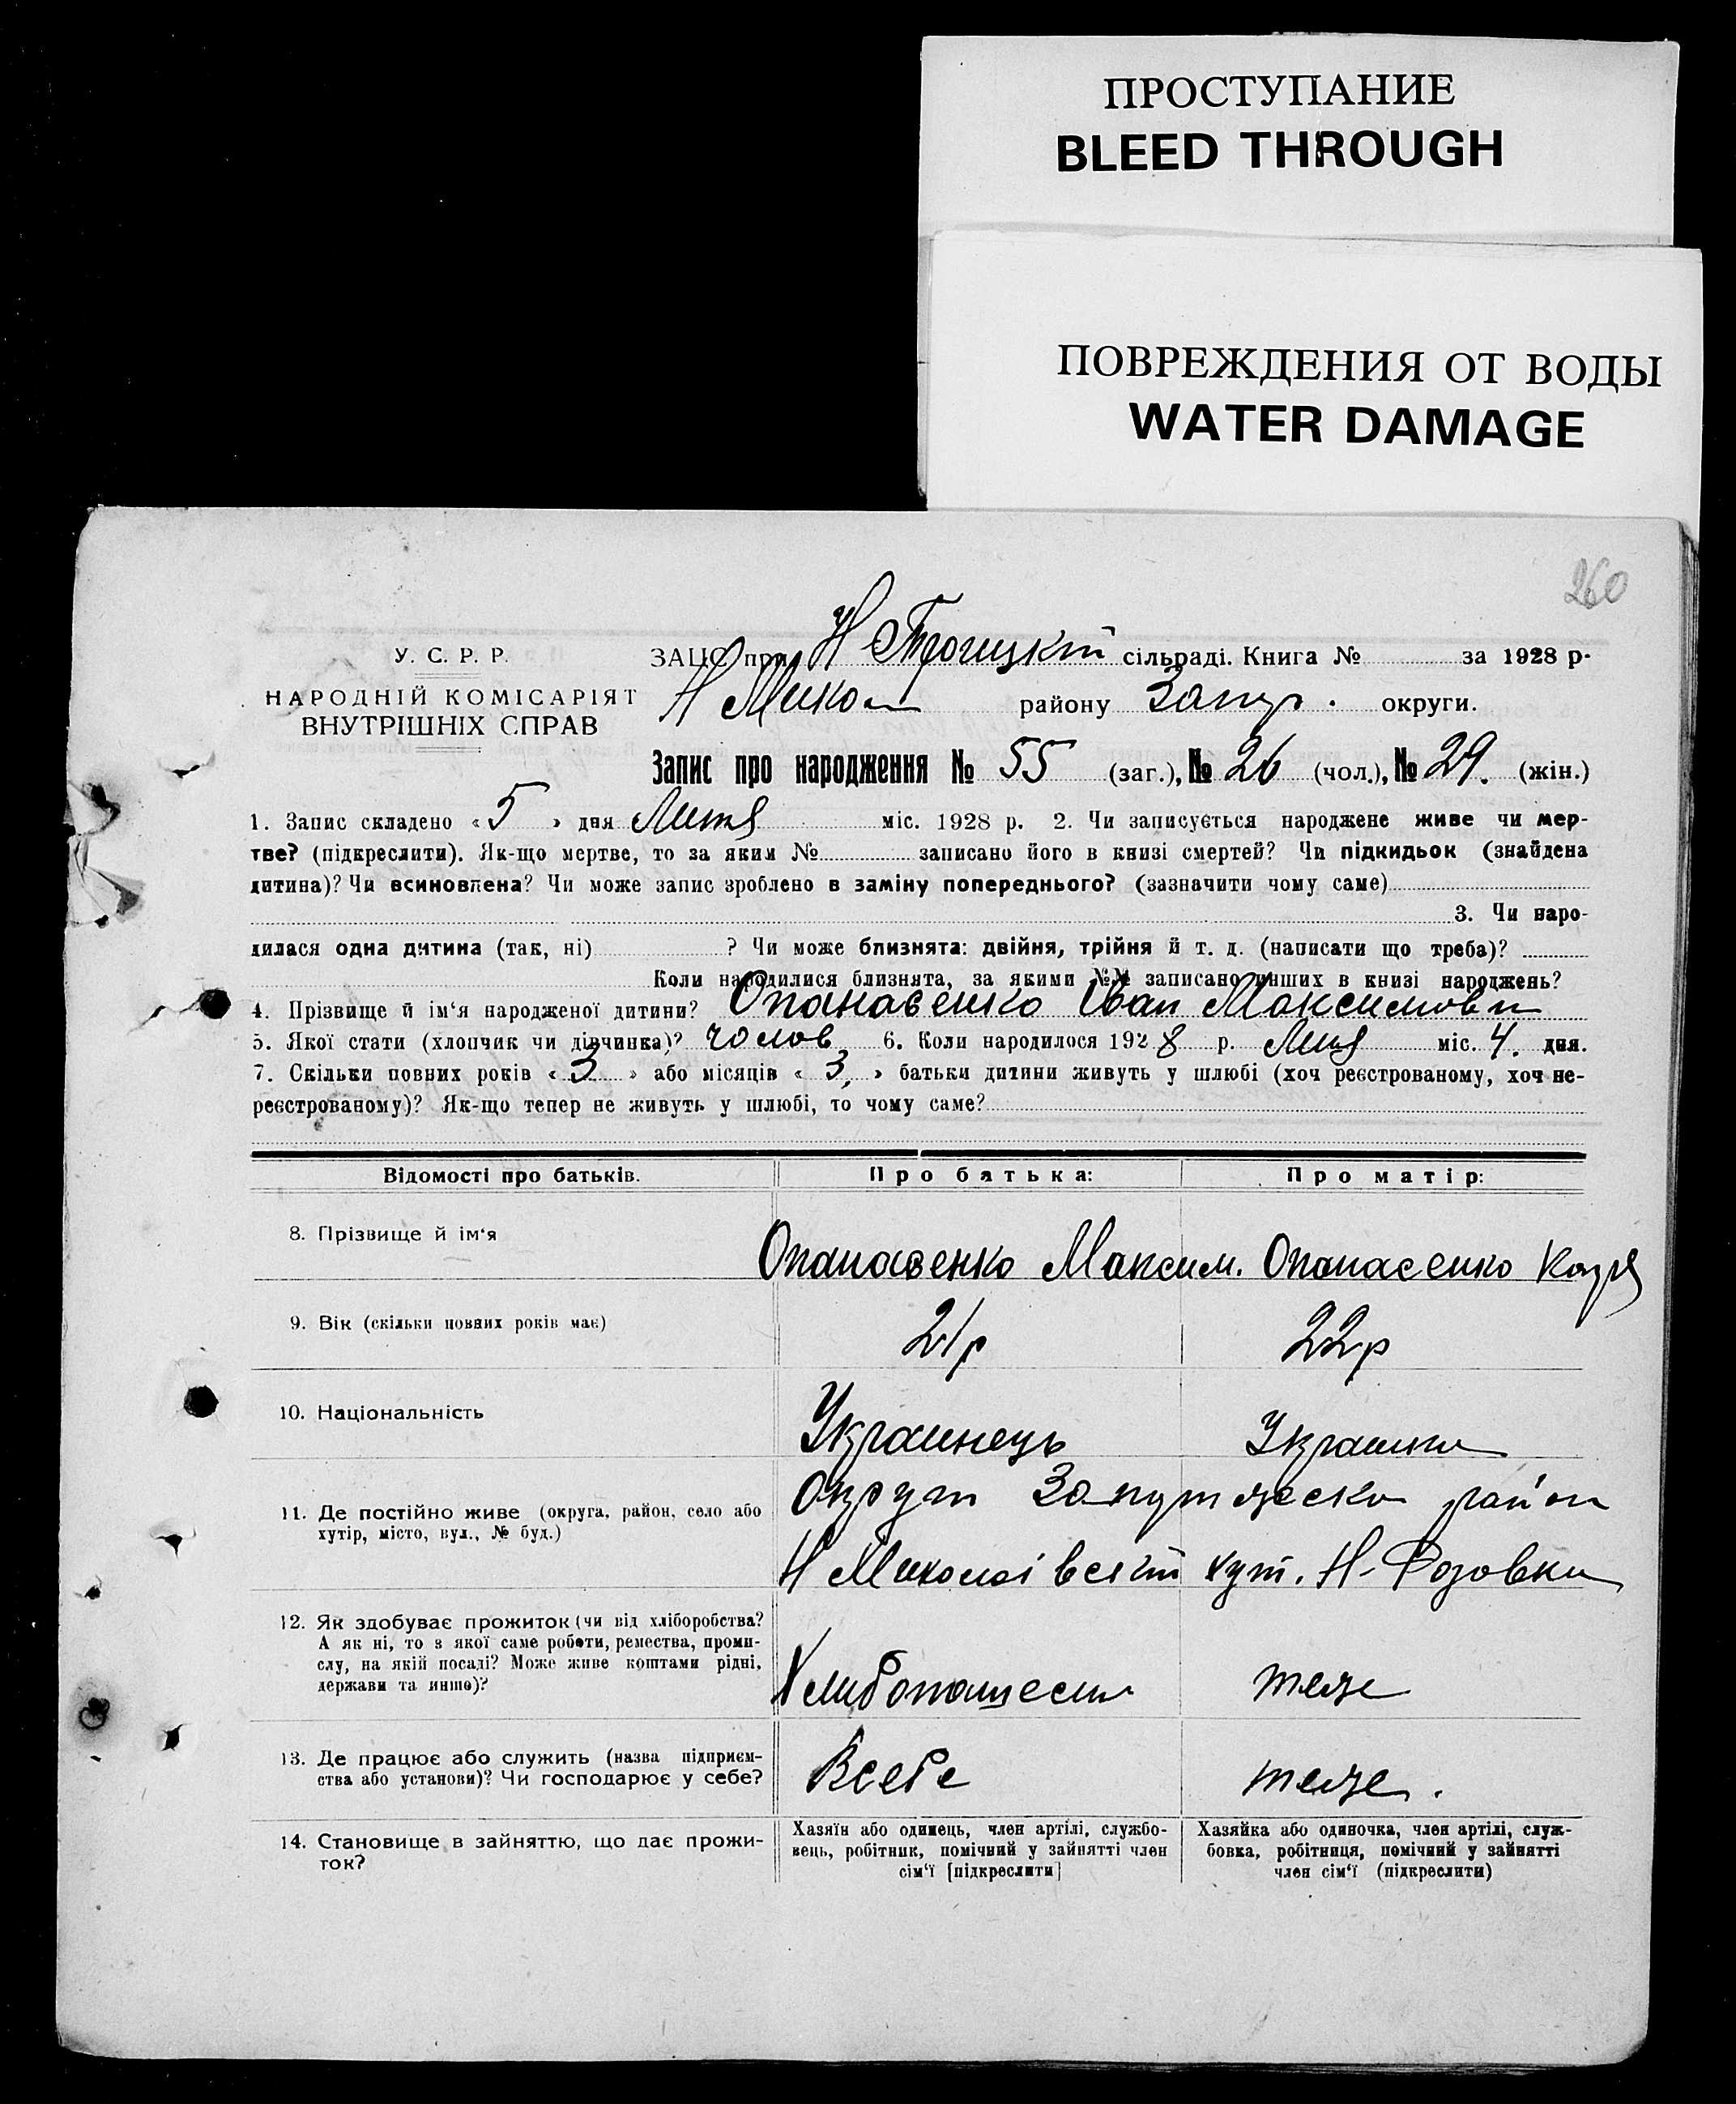 ПРОСТУПАНИЕ
BLEED THROUGH
ПОВРЕЖДЕНИЯ ОТ ВОДЫ
WATER DAMAGE
260
У. С. Р. Р.
НАРОДНІЙ КОМІСАРІЯТ
ВНУТРІШНІХ СПРАВ
ЗАЦС при Н Троицкій сільраді. Книга № за 1928 р.
Н Микол району Запор. округи.
Запис про народження № 55 (заг.), № 26 (чол.), № 29. (жін.)
1. Запис складено « 5 » дня міс. 1928 р. 2. Чи записується народжене живе чи мер-
тве? (підкреслити). Як-що мертве, то за яким № записано його в книзі смертей? Чи підкидьок (знайдена
дитина)? Чи всиновлена? Чи може запис зроблено в заміну попереднього? (зазначити чому саме)
3. Чи наро-
дилася одна дитина (так, ні) ? Чи може близнята: двійня, трійня й т. д. (написати що треба)?
Коли народилися близнята, за якими №№ записано инших в книзі народжень?
4. Прізвище й ім'я народженої дитини? Опанасенко Іван Максимови
5. Якої стати (хлопчик чи дівчинка)? чолов 6. Коли народилося 1928 р. міс. 4. дня.
7. Скільки повних років « 3 » або місяців « 3, » батьки дитини живуть у шлюбі (хоч реєстрованому, хоч не-
реєстрованому)? Як-що тепер не живуть у шлюбі, то чому саме?
Відомості про батьків. Про батька: Про матір:
8. Прізвище й ім'я Опанасенко Максим. Опанасенко
9. Вік (скільки повних років має) 21р 22р
10. Національність Украинець Украинка
11. Де постійно живе (округа, район, село або
хутір, місто, вул., № буд.)
Округи район
Н Миколаівскій хут. Н-Розовки
12. Як здобуває прожиток (чи від хліборобства?
А як ні, то з якої саме роботи, ремества, проми-
слу, на якій посаді? Може живе коштами рідні,
держави та инше)?
теже
13. Де працює або служить (назва підприєм-
ства або установи)? Чи господарює у себе?
Всебе теже.
14. Становище в зайняттю, що дає прожи-
ток?
Хазяїн або одинець, член артілі, службо-
вець, робітник, помічний у зайнятті член
сім'ї [підкреслити]
Хазяйка або одиночка, член артілі, служ-
бовка, робітниця, помічний у зайнятті
член сім'ї (підкреслити)